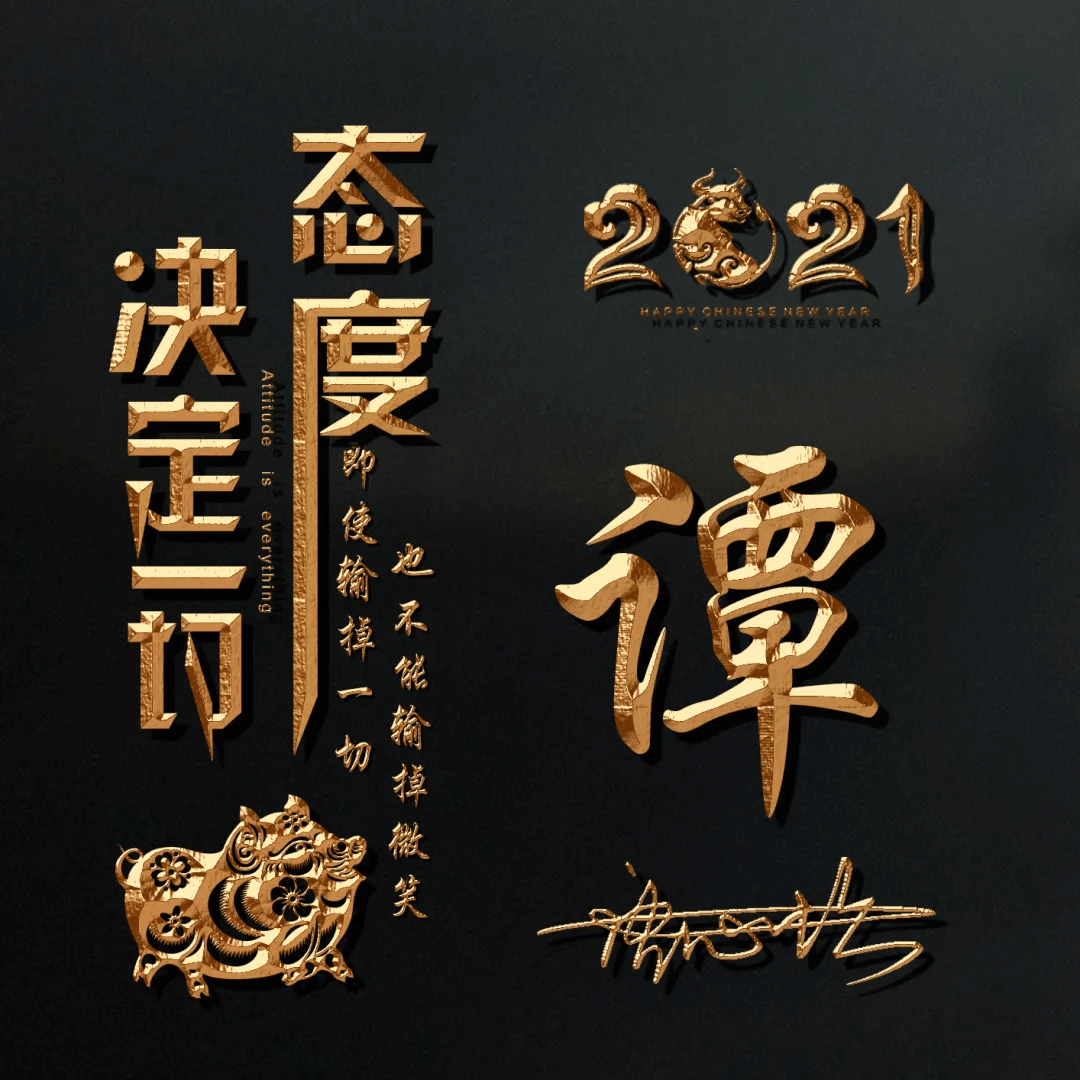 态度
决定一切
Attitude is everything
即使输掉一切
也不能输掉微笑
2021
HAPPY CHINESE NEW YEAR
谭